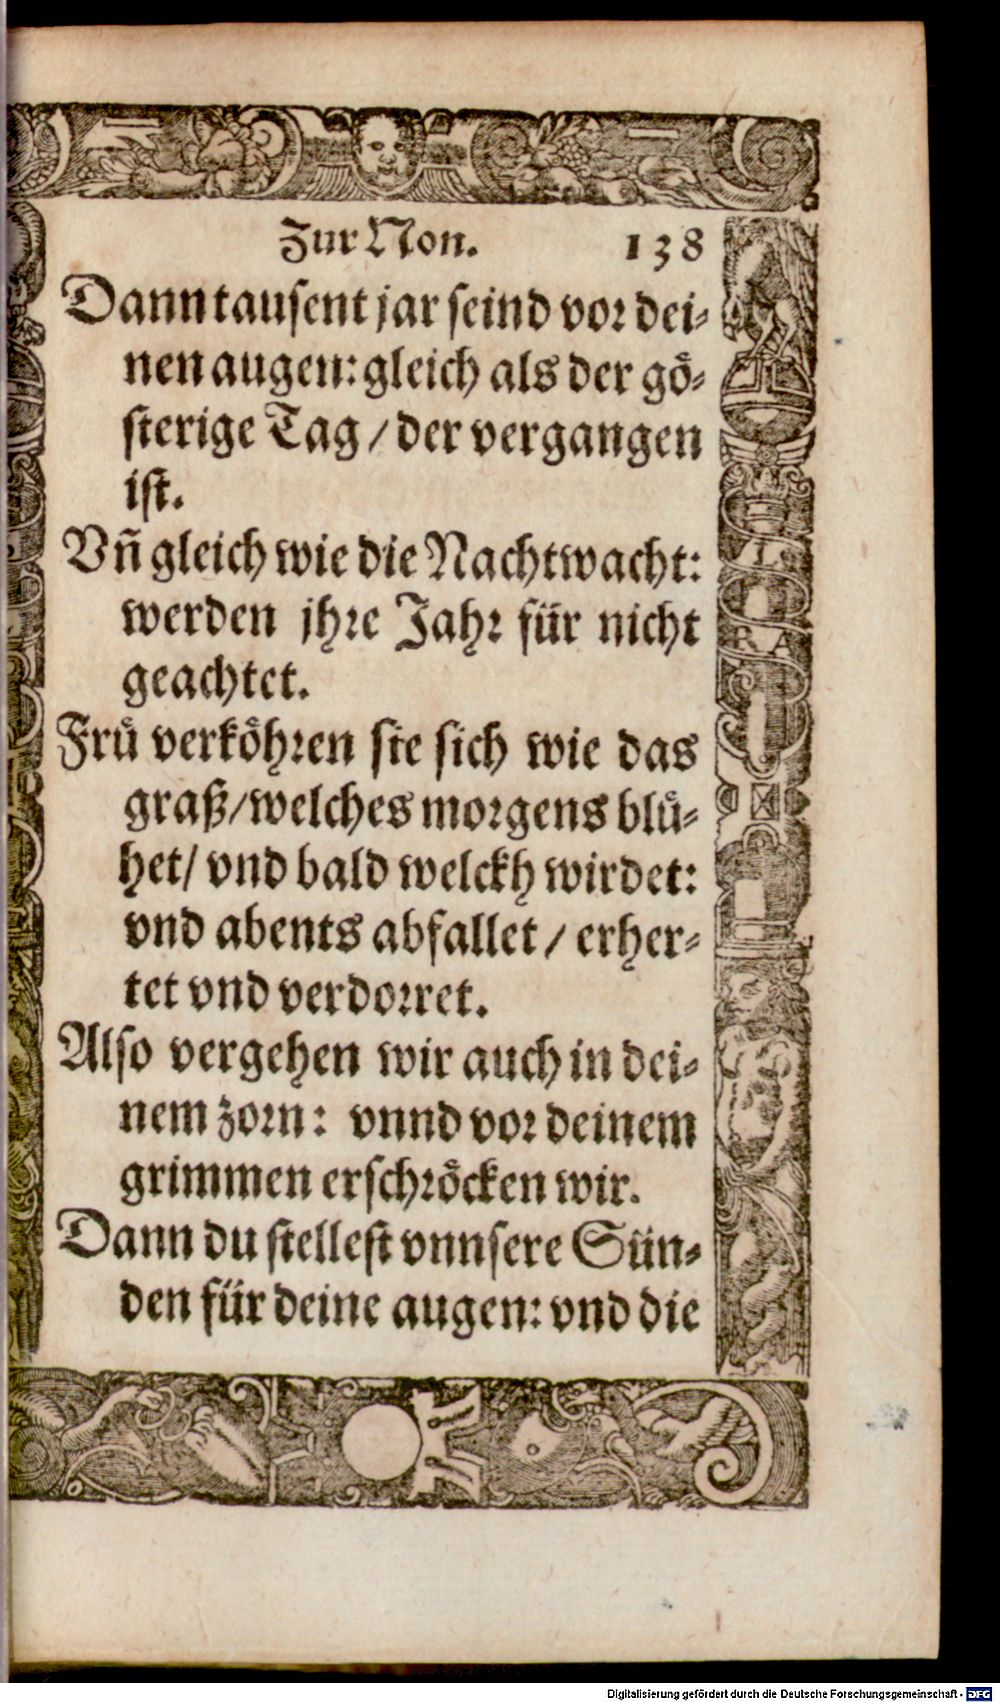 Zur Non. 138
Dann tausent jar seind vor dei-
nen augen: gleich als der gö-
sterige Tag / der vergangen
ist.
Vñ gleich wie die Nachtwacht:
werden jhre Jahr für nicht
geachtet.
Frü verköhren sie sich wie das
graß/welches morgens blü-
het/ vnd bald welckh wirdet:
vnd abents abfallet / erher-
tet vnd verdorret.
Also vergehen wir auch in dei-
nem zorn: vnnd vor deinem
grimmen erschröcken wir.
Dann du stellest vnnsere Sün-
den für deine augen: vnd die
L
RA
Digitalisierung gefördert durch die Deutsche Forschungsgemeinschaft - DFG